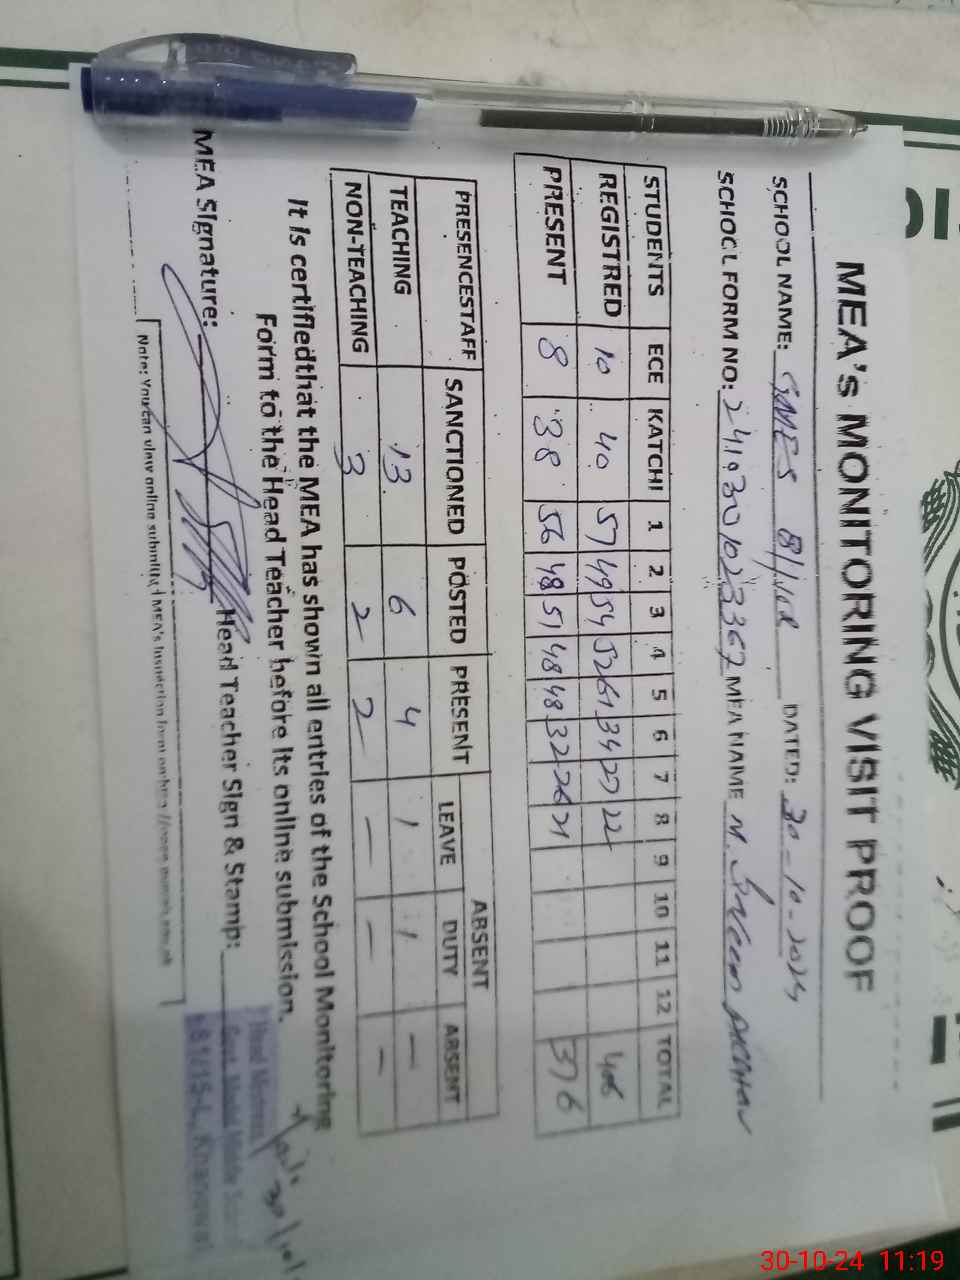 MEA's MONITORING VISIT PROOF
SCHOOL NAME: GMES 81/15L DATED: 30-10-2024
SCHOOL FORM NO: 2419300102 3367 MEA NAME M. Akhtar
STUDENTS ECE KATCHI 1 2 3 4 5 6 7 8 9 10 11 12 TOTAL
REGISTRED 10 40 57 49 54 52 61 34 27 22 406
PRESENT 8 38 56 48 51 48 48 32 26 21 376
PRESENCESTAFF SANCTIONED POSTED PRESENT ABSENT
LEAVE DUTY ABSENT
TEACHING 13 6 4 1 1 -
NON-TEACHING 3 2 2 - - -
It is certifiedthat the MEA has shown all entries of the School Monitoring
Form to the Head Teacher before its online submission.
MEA Signature: Head Teacher Sign & Stamp:
Head Mistress
Govt. Model Middle
81/15-L, Khanewal
Note: You can view online submitted MEA's Inspection form on
30-10-24 11:19